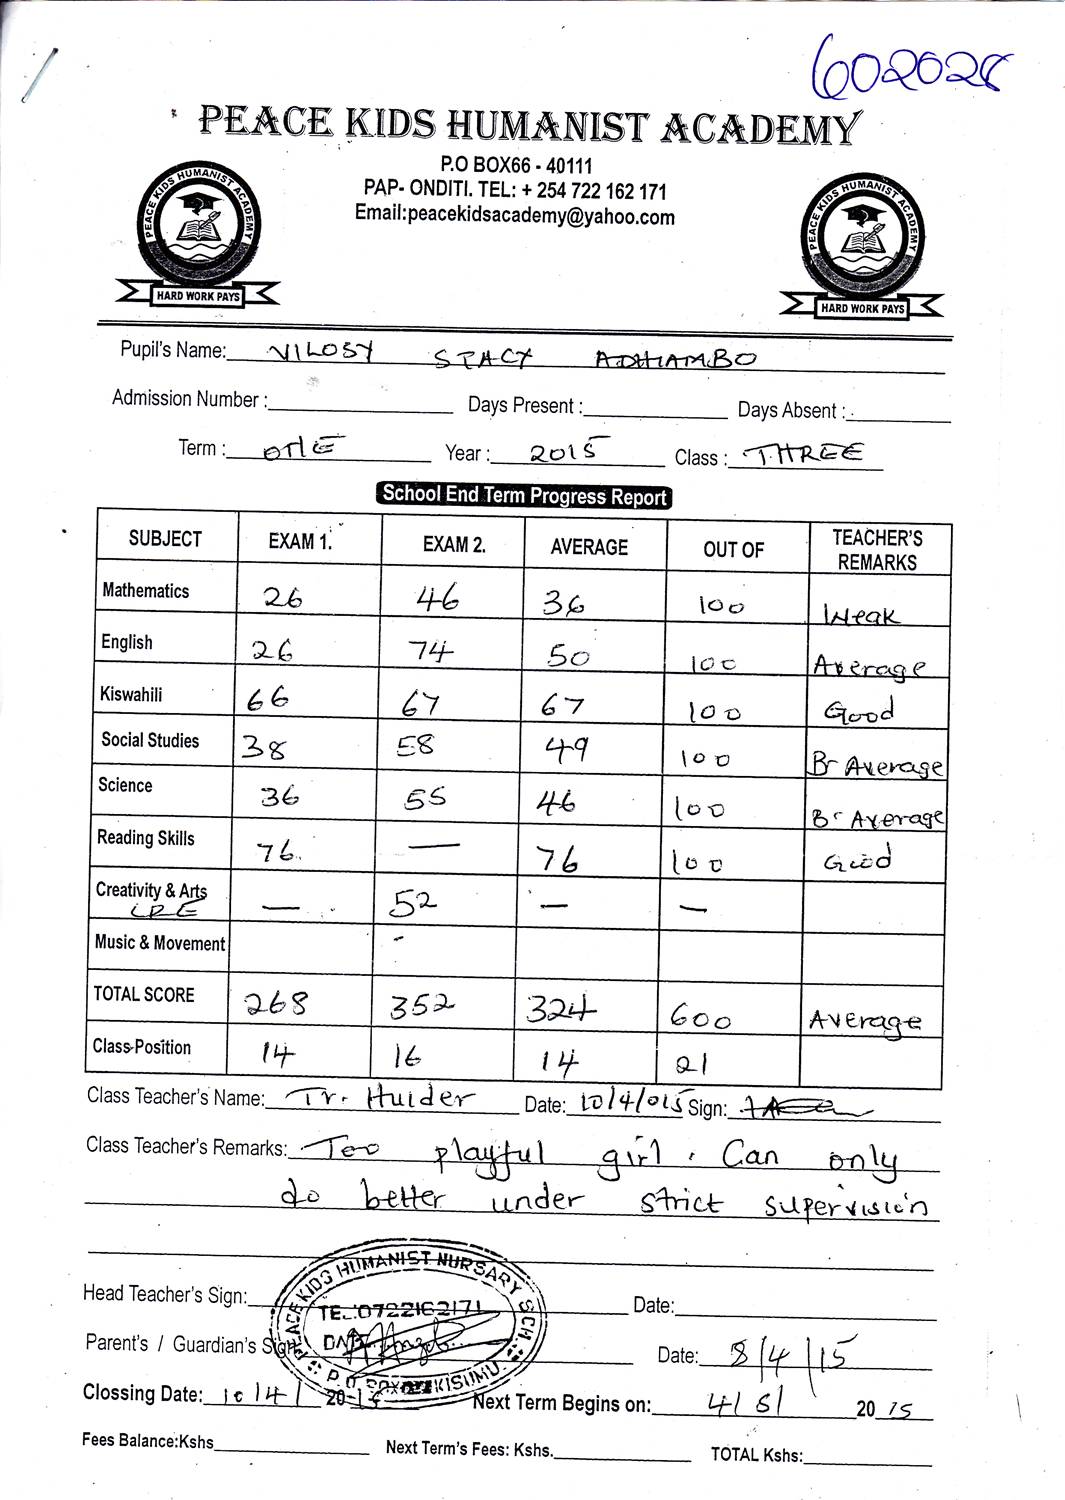 602028
PEACE KIDS HUMANIST ACADEMY
P.O BOX66 - 40111
PAP- ONDITI. TEL: + 254 722 162 171
Email:peacekidsacademy@yahoo.com
PEACE KIDS HUMANIST ACADEMY
HARD WORK PAYS
PEACE KIDS HUMANIST ACADEMY
HARD WORK PAYS
Pupil's Name: VILOSY STACY ADHIAMBO
Admission Number : Days Present : Days Absent :
Term : ONE Year : 2015 Class : THREE
School End Term Progress Report
SUBJECT EXAM 1. EXAM 2. AVERAGE OUT OF TEACHER'S REMARKS
Mathematics 26 46 36 100 Weak
English 26 74 50 100 Average
Kiswahili 66 67 67 100 Good
Social Studies 38 58 49 100 Br Average
Science 36 55 46 100 Br Average
Reading Skills 76 — 76 100 Good
Creativity & Arts — 52 — —
CRE
Music & Movement -
TOTAL SCORE 268 352 324 600 Average
Class-Position 14 16 14 21
Class Teacher's Name: Tr. Hulder Date: 10/4/015 Sign:
Class Teacher's Remarks: Too playful girl. Can only
do better under strict supervision
PEACE KIDS HUMANIST NURSARY SCH.
Head Teacher's Sign: Date:
TEL:0722162171
Parent's / Guardian's Sign: Date: 8/4/15
DATE
P.O BOX KISUMU
Clossing Date: 10/4/ 2015 Next Term Begins on: 4/5/ 2015
Fees Balance:Kshs Next Term's Fees: Kshs. TOTAL Kshs: